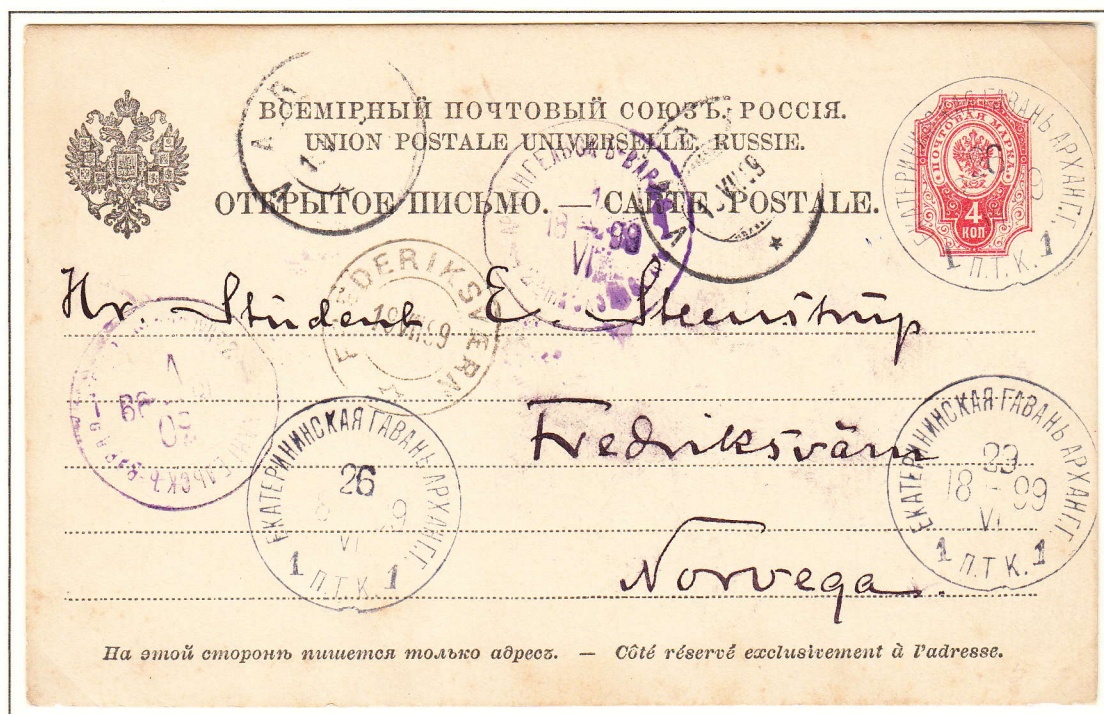 ВСЕМІРНЫЙ ПОЧТОВЫЙ СОЮЗЪ. РОССІЯ.
UNION POSTALE UNIVERSELLE. RUSSIE.
ОТКРЫТОЕ ПИСЬМО. — CARTE POSTALE.
ПОЧТОВАЯ МАРКА
4
КОП
ЕКАТЕРИНИНСКАЯ ГАВАНЬ АРХАНГ.Г.
1 П.Т.К. 1
18 99
VI
FREDERIKSVÆRN
Hr. Student E. Steenstrup
Fredriksværn
Norvega.
ЕКАТЕРИНИНСКАЯ ГАВАНЬ АРХАНГ.Г.
26
VI
1 П.Т.К. 1
ЕКАТЕРИНИНСКАЯ ГАВАНЬ АРХАНГ.Г.
23
18-99
VI
1 П.Т.К. 1
На этой сторонѣ пишется только адресъ. — Côté réservé exclusivement à l'adresse.